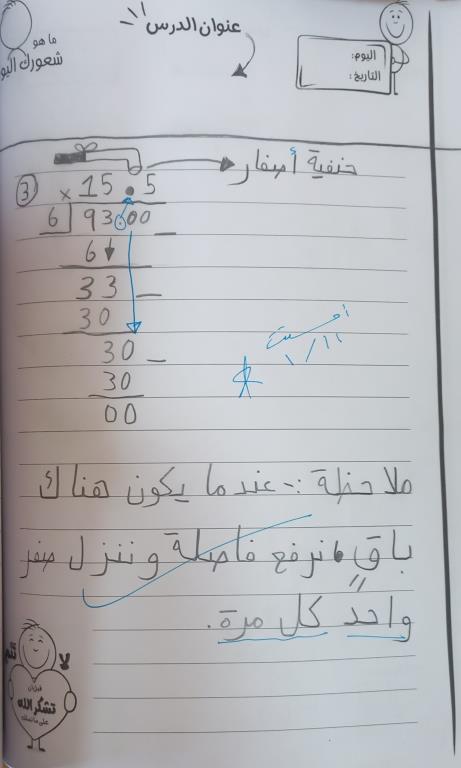 ما هو
شعورك اليو
عنوان الدرس
اليوم:
التاريخ:
حنفية أصفار
3
× 15.5
6 93.00
6
33
30
30
30
00
أحسنت
١٠/١١
ملاحظة :- عندما يكون هناك
باقٍ، نرفع فاصلة وننزل صفر
واحدٌ كل مرة.
لا
تشكر الله